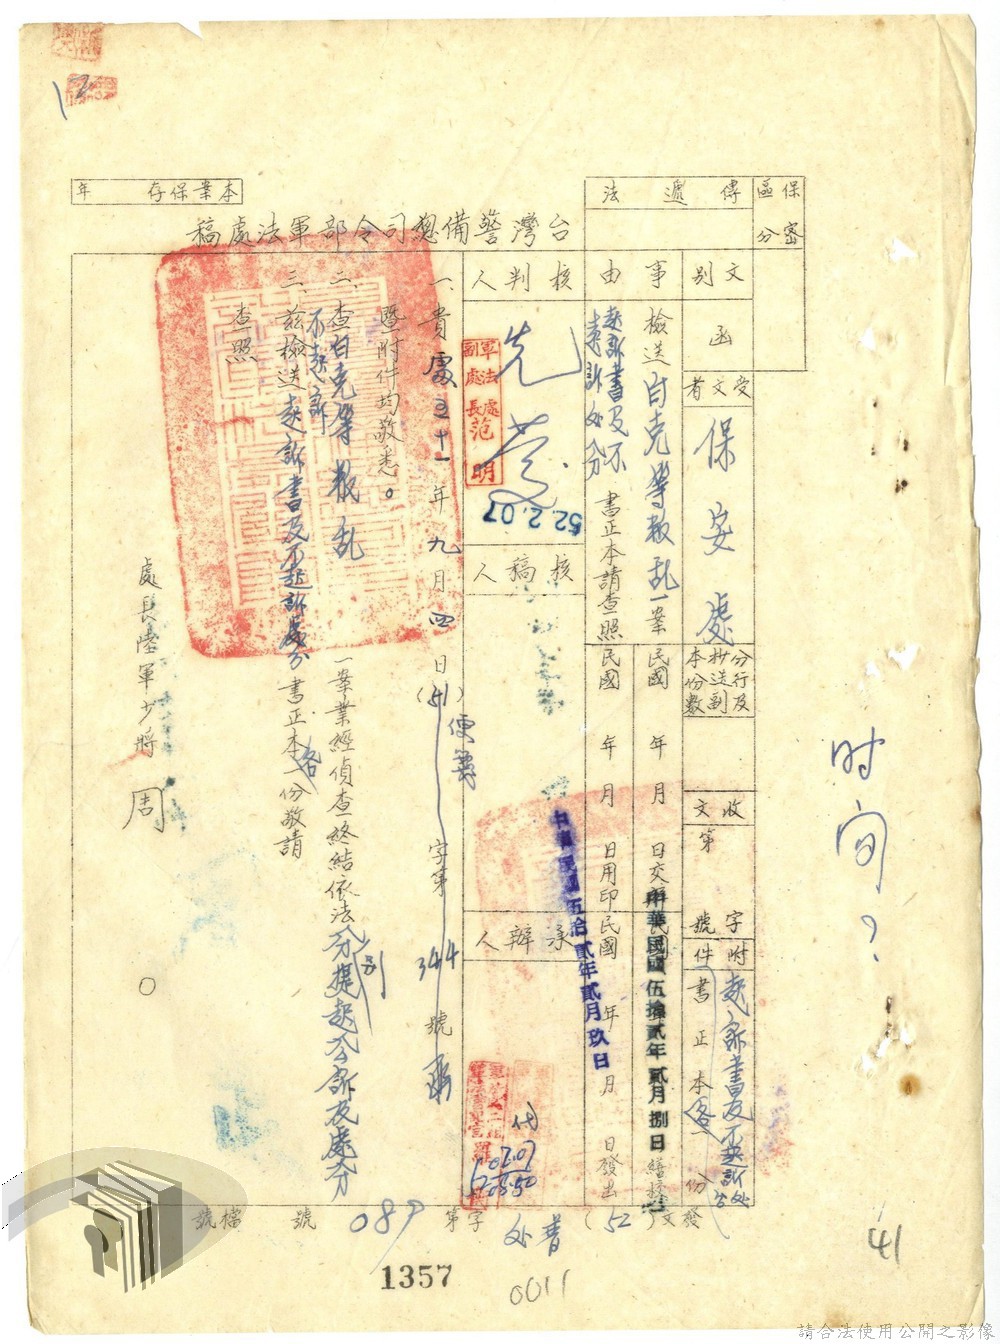 保密
區分
傳遞法
台灣警備總司令部軍法處稿
本案保存 年
文別
函
受文者
保安處
分行及
抄送副
本份數
收文
第 號
字
附件
起訴書及不起訴處分
書正本各一份
事由
檢送白克等叛乱一案
起訴書及不
起訴処分
書正本請查照
民國 年 月 日交
中華民國伍拾貳年貳月捌日
繕校
民國 年 月 日用印
民國 年 月 日發出
中華民國伍拾貳年貳月玖日
發文(52)
普处
字第
089
號
檔號
核判人
軍法處
副處長
范明
52.2.07
核稿人
承辦人
代
02.07
0850
一、貴處五十一年九月四日(51)
便
字第344號
暨附件均敬悉。
二、查白克等叛乱
一案業經偵查終結依法分別提起公訴及處分
不起訴
三、茲檢送起訴書及不起訴處分書正本各一份敬請
查照
處長陸軍少將周 ○
时间?
12
41
1357
0011
請合法使用公開之影像